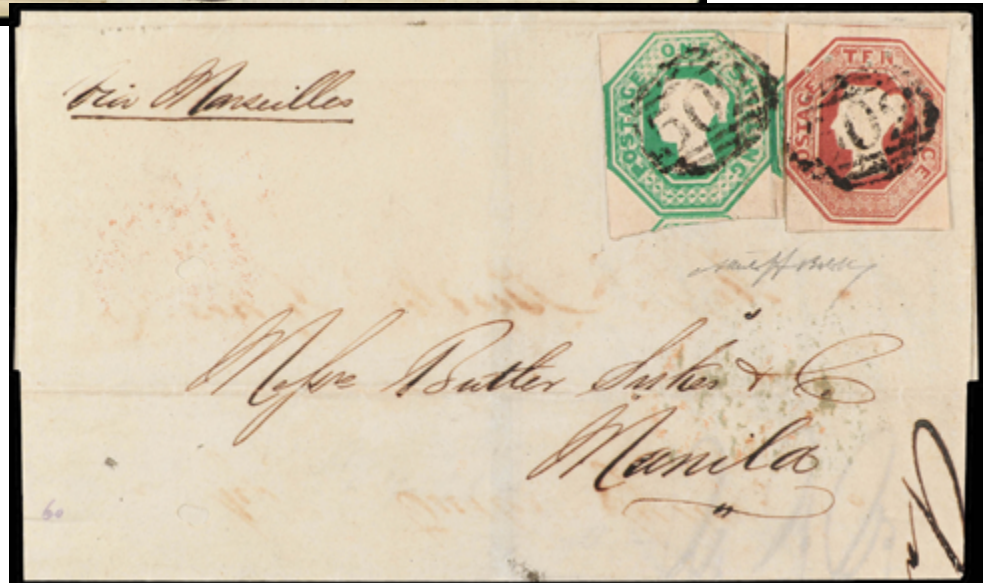 via Marseilles
POSTAGE ONE SHILLING
POSTAGE TEN PENCE
50
Messrs Butler Sykes & C
Manila
60